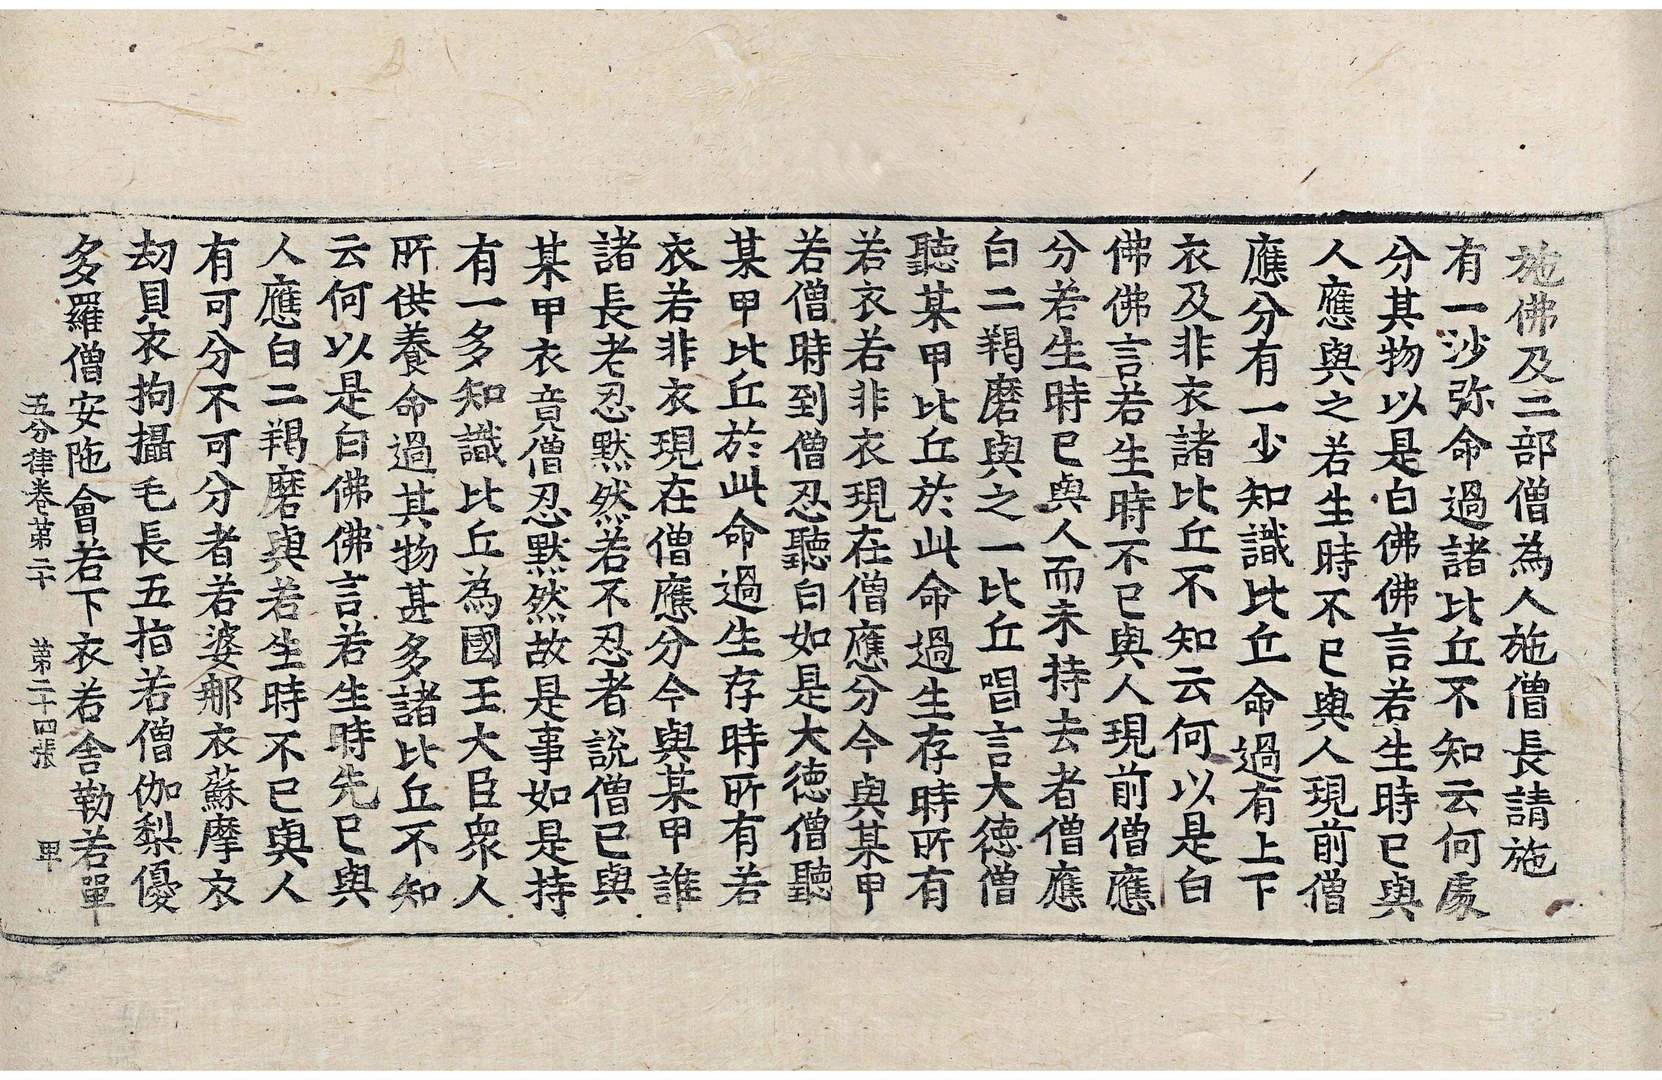 施佛及二部僧為人施僧長請施
有一沙弥命過諸比丘不知云何處
分其物以是白佛佛言若生時已與
人應與之若生時不已與人現前僧
應分有一少知識比丘命過有上下
衣及非衣諸比丘不知云何以是白
佛佛言若生時不已與人現前僧應
分若生時已與人而未持去者僧應
白二羯磨與之一比丘唱言大德僧
聽某甲比丘於此命過生存時所有
若衣若非衣現在僧應分今與某甲
若僧時到僧忍聽白如是大德僧聽
某甲比丘於此命過生存時所有若
衣若非衣現在僧應分今與某甲誰
諸長老忍默然若不忍者說僧已與
某甲衣竟僧忍默然故是事如是持
有一多知識比丘為國王大臣衆人
所供養命過其物甚多諸比丘不知
云何以是白佛佛言若生時先已與
人應白二羯磨與若生時不已與人
有可分不可分者若婆𨚗衣蘇摩衣
劫貝衣拘攝毛長五指若僧伽梨優
多羅僧安陁會若下衣若舍勒若單
五分律卷第二十 第二十四張 甲